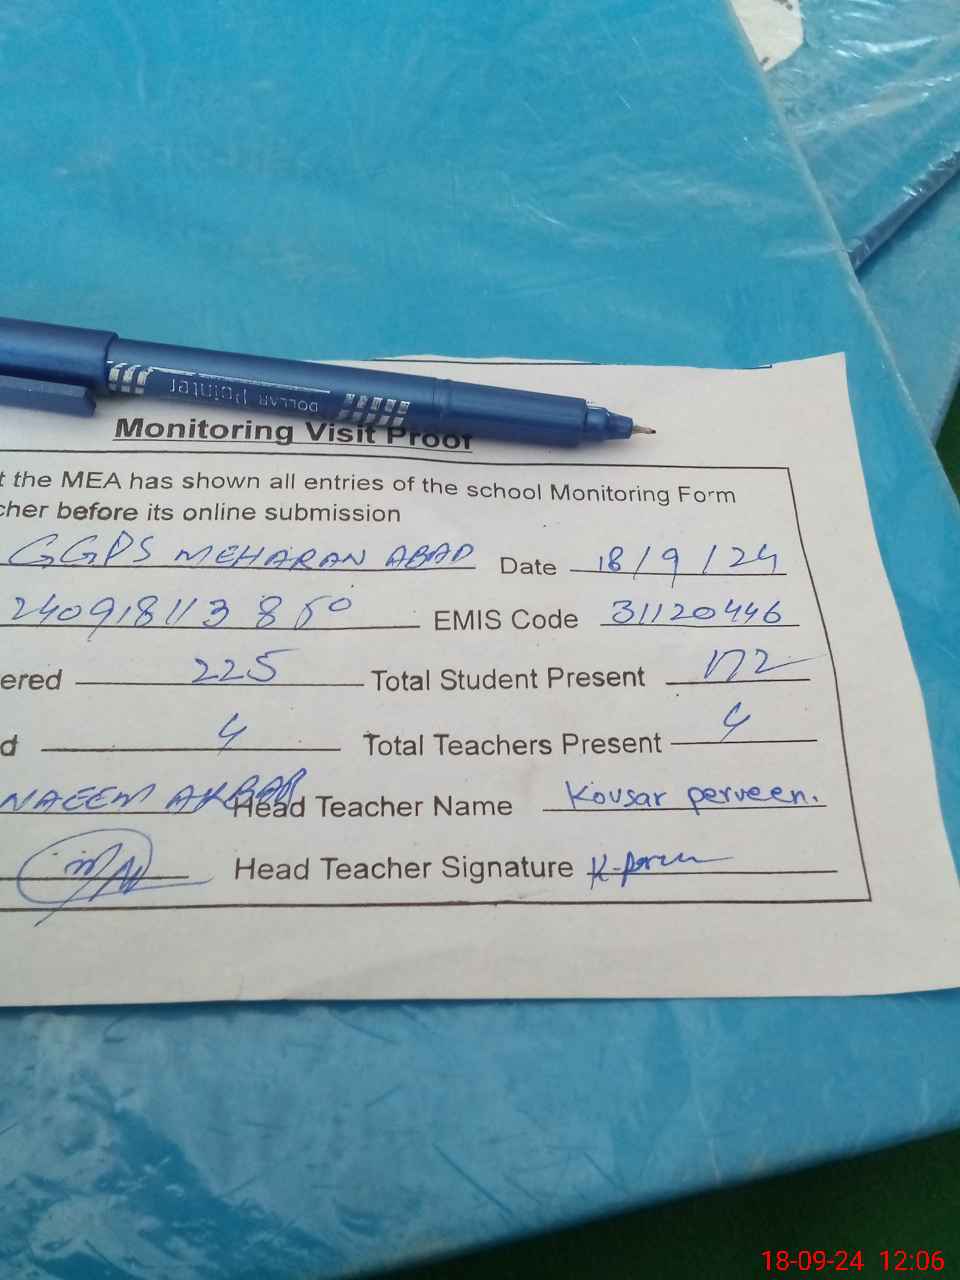 DOLLAR Pointer
Monitoring Visit Proof
t the MEA has shown all entries of the school Monitoring Form
cher before its online submission
GGPS MEHARAN ABAD Date 18/9/24
240918113850 EMIS Code 31120446
ered 225 Total Student Present 172
d 4 Total Teachers Present 4
NAEEM AKBAR Head Teacher Name Kousar perveen.
Head Teacher Signature
18-09-24 12:06